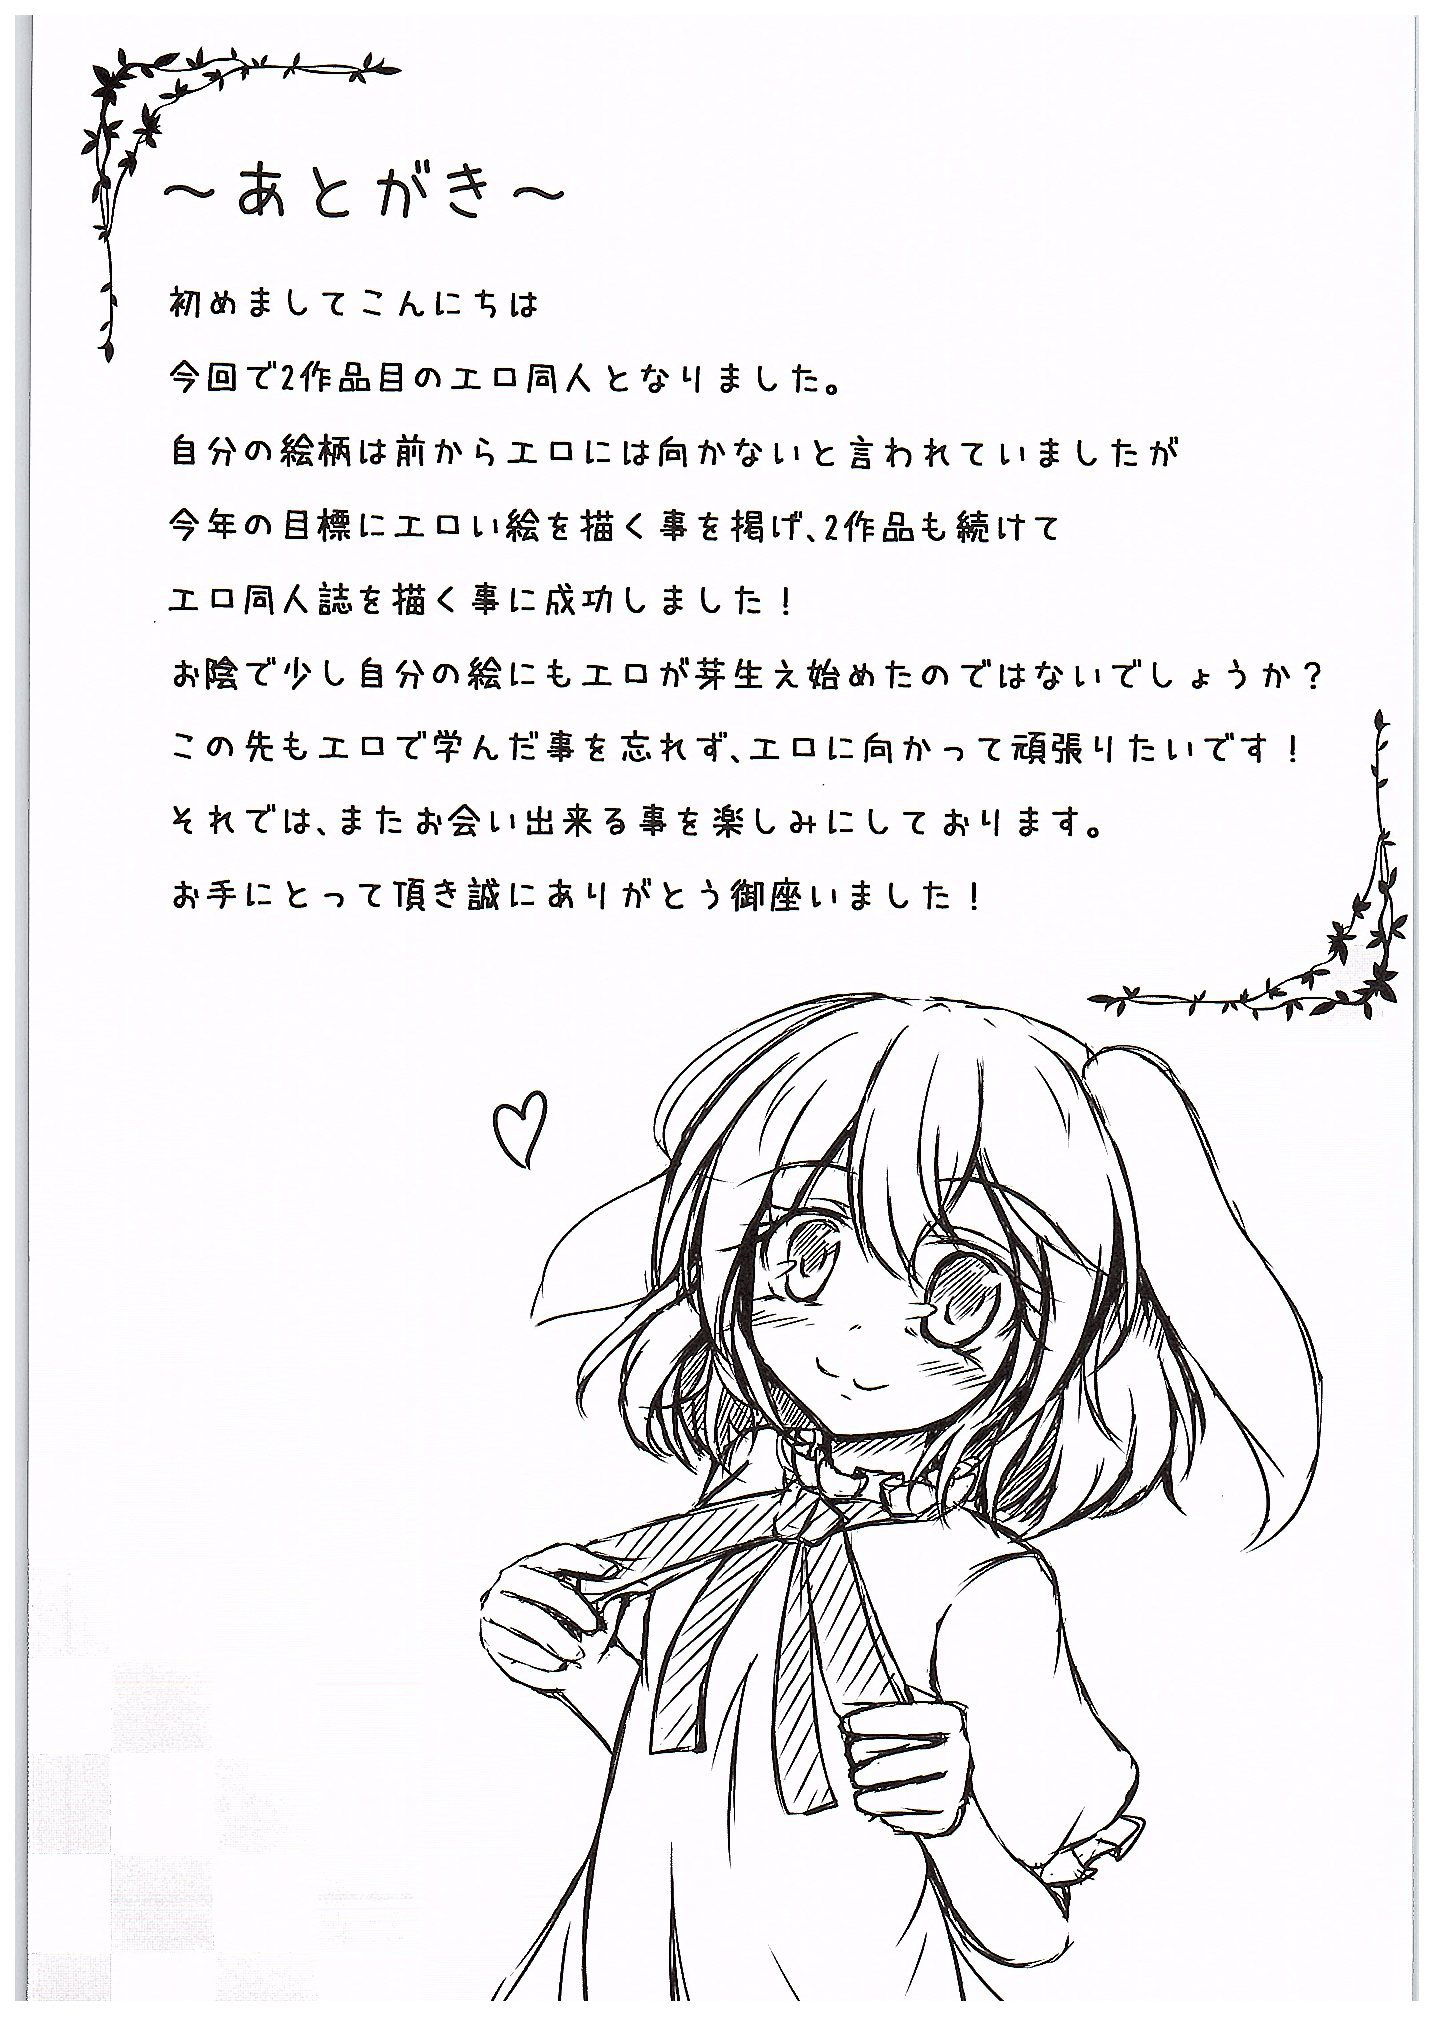 ～あとがき～
初めましてこんにちは
今回で2作品目のエロ同人となりました。
自分の絵柄は前からエロには向かないと言われていましたが
今年の目標にエロい絵を描く事を掲げ、2作品も続けて
エロ同人誌を描く事に成功しました！
お陰で少し自分の絵にもエロが芽生え始めたのではないでしょうか？
この先もエロで学んだ事を忘れず、エロに向かって頑張りたいです！
それでは、またお会い出来る事を楽しみにしております。
お手にとって頂き誠にありがとう御座いました！